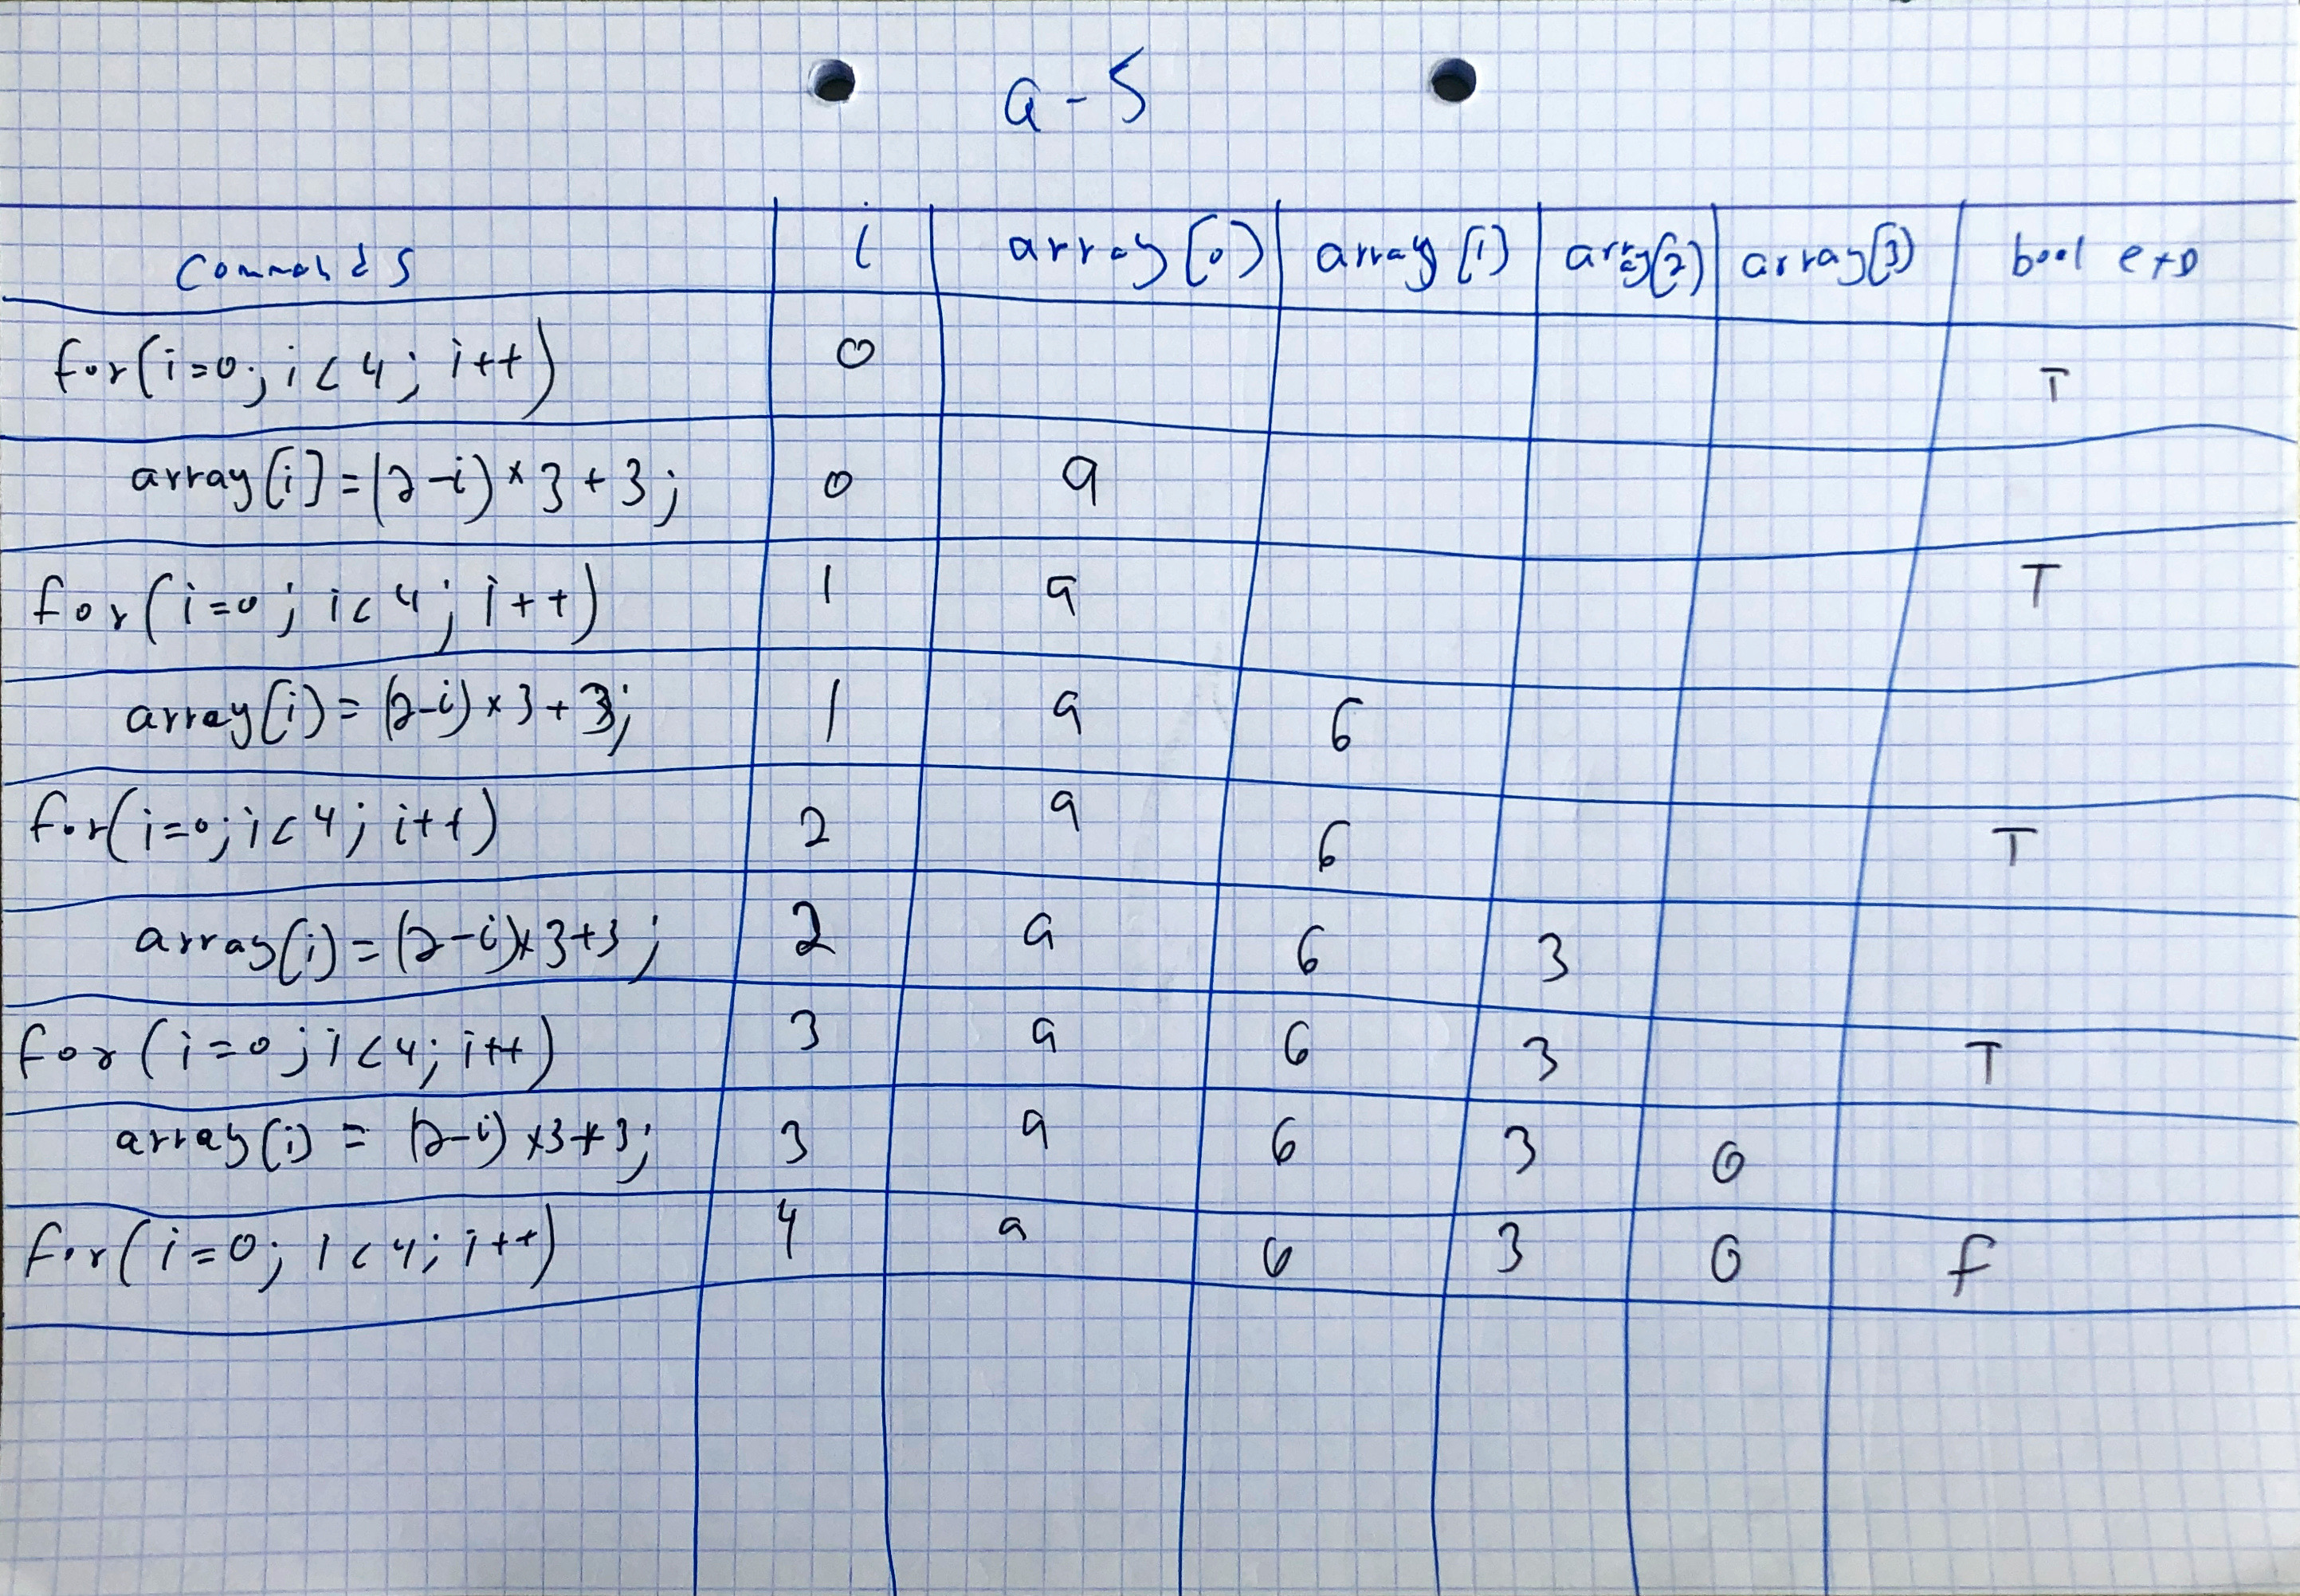 a-5
Commands i array[0] array[1] array[2] array[3] bool exp
for(i=0; i<4; i++) 0 T
array[i]=(2-i)*3+3; 0 9
for(i=0; i<4; i++) 1 9 T
array[i]=(2-i)*3+3; 1 9 6
for(i=0; i<4; i++) 2 9 6 T
array[i]=(2-i)*3+3; 2 9 6 3
for(i=0; i<4; i++) 3 9 6 3 T
array[i]=(2-i)*3+3; 3 9 6 3 0
for(i=0; i<4; i++) 4 9 6 3 0 f